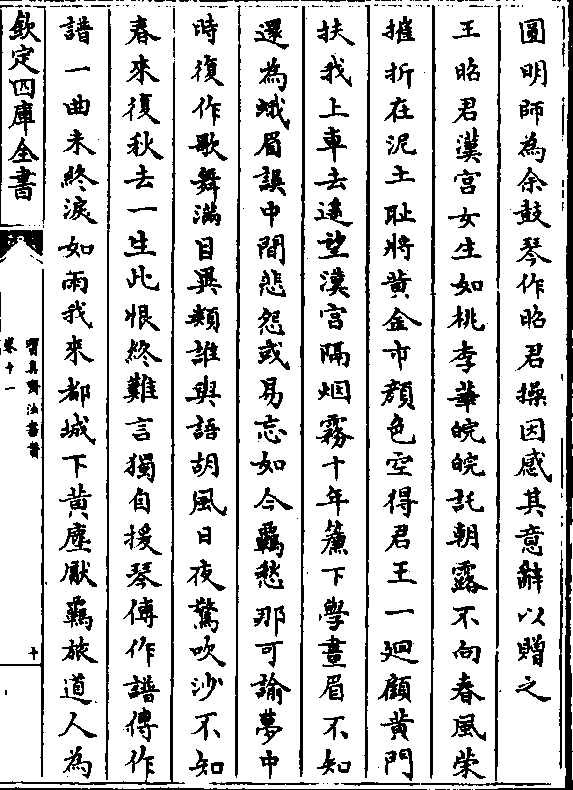 圓明師為余鼓琴作昭君操因感其意辭以贈之
王昭君漢宮女生如桃李華皖皖託朝露不向春風榮
摧折在泥土耻將黄金巿顔色空得君王一廻顧黄門
扶我上車去遥望漢宮隔烟霧十年簾下學畫眉不知
還為蛾眉誤中間悲怨或易忘如今羈愁那可諭夢中
時復作歌舞滿目異類誰與語胡風日夜驚吹沙不知
春來復秋去一生此恨終難言獨自援琴傳作譜傳作
譜一曲未終淚如雨我來都城下黄塵厭羈旅道人為
欽定四庫全書
卷十一
十